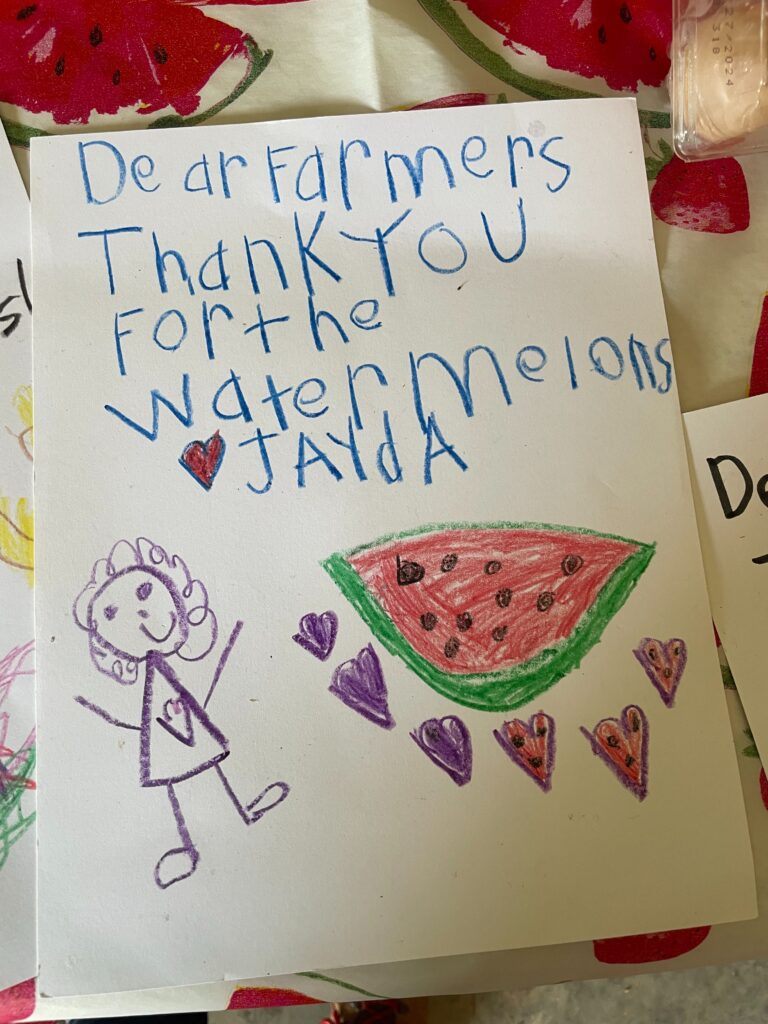 Dear Farmers
Thank YOU
For the
watermelons
JAYdA
De
27/2024
318